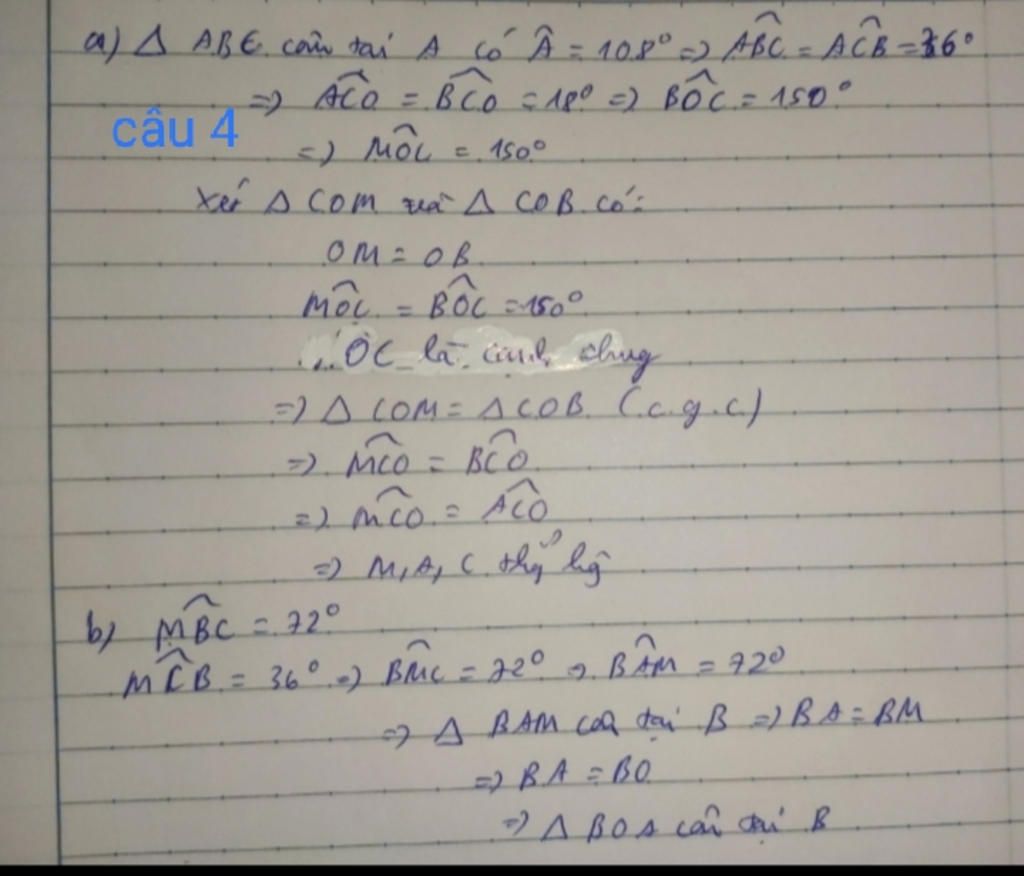 a) Δ ABC cân tại A có Â = 108° => ABC^ = ACB^ = 36°
=> ACO^ = BCO^ = 18° => BOC^ = 150°
câu 4
=> MOC^ = 150°
Xét Δ COM và Δ COB có:
OM = OB
MOC^ = BOC^ = 150°
OC là cạnh chung
=> Δ COM = Δ COB (c.g.c)
=> MCO^ = BCO^
=> MCO^ = ACO^
=> M, A, C thg hg
b) MBC^ = 72°
MCB^ = 36° => BMC^ = 72° => BAM^ = 72°
=> Δ BAM cân tại B => BA = BM
=> BA = BO
=> Δ BOA cân tại B